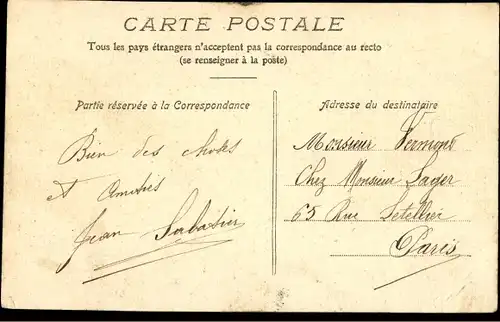 CARTE POSTALE
Tous les pays étrangers n'acceptent pas la correspondance au recto
(se renseigner à la poste)
Partie réservée à la Correspondance
Bien des choses
et amitiés
Jean Sabatier
Adresse du destinataire
Monsieur Vermond
Chez Monsieur Sager
65 Rue Letellier
Paris